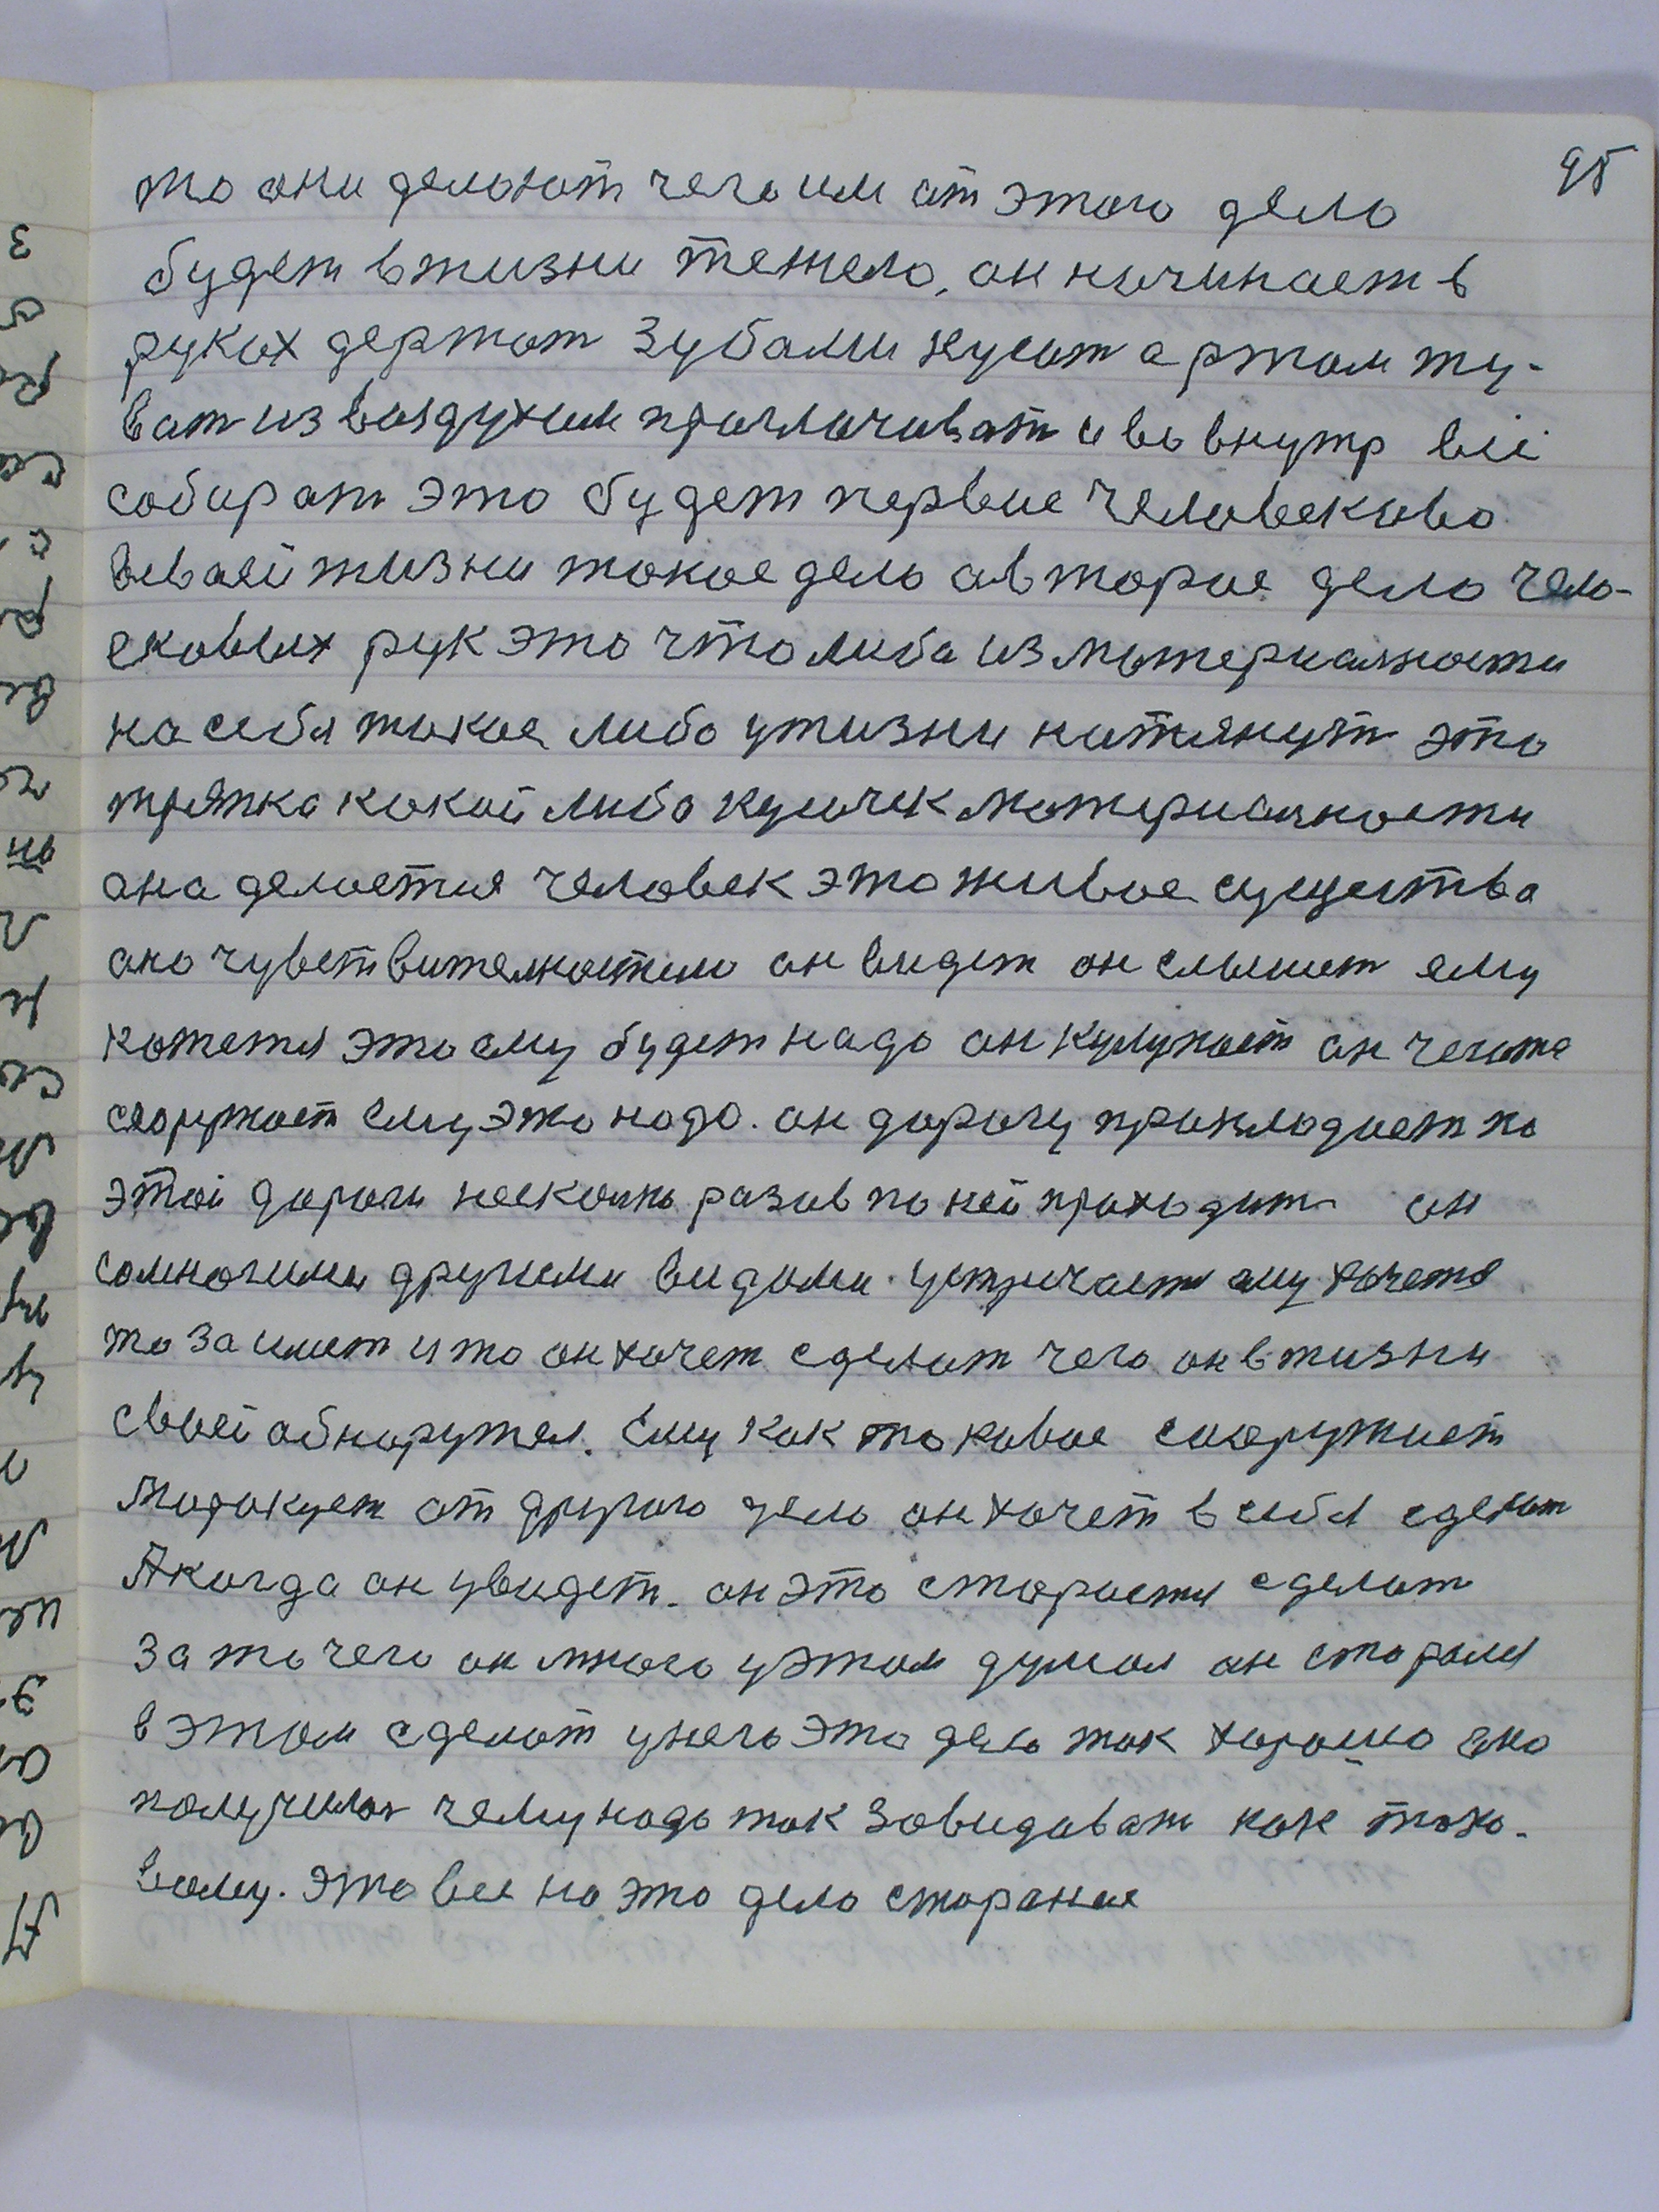 95
то они делают чего им от этого дело
будет в жизни тежело, он начинает в
руках держат зубами кусат а ртом жу-
ват из воздухим проглочиват и во внутр всё
собират это будет первые человеково
всвоей жизни такое дело авторое дело чело-
ековых рук это что либа из материалности
на себя такое либо ужизни натянут это
тряпка какой либо кусичек материалности
она делается человек это живое существа
оно чувствителностю он видет он слышит ему
кажется это ему будет надо он думает он чегото
сооружает ему это надо. он дорогу прокладает по
этой дороги несколко разов по ней проходит он
сомногими другими видами устричается ему хочется
то за имет и то он хочет сделат чего он в жизни
своей обнаружел. Ему как то ковое сооружает
Мазокует от другого дело он хочет в себя сделат
А когда он увидет. он это старается сделат
За то чего он много уэтом думал он старался
в этом сделат унего это дело так хорошо оно
получилос чему надо так завидоват как тако-
вому. это все на это дело старание
3
с
р
А